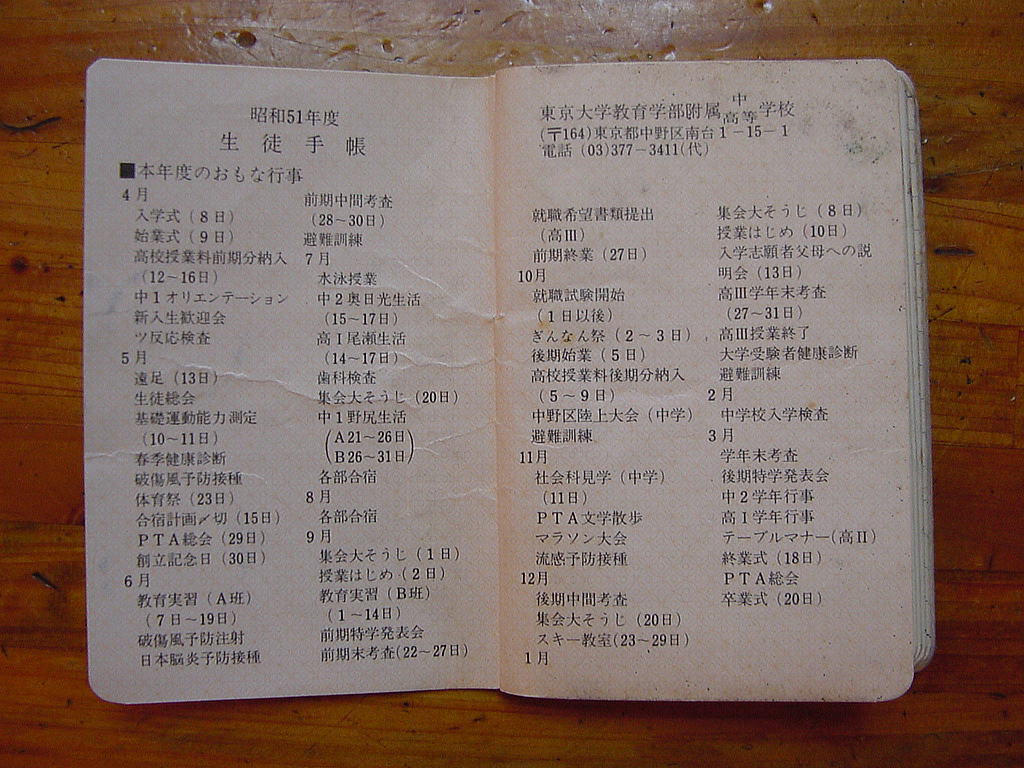 昭和51年度
生徒手帳
■本年度のおもな行事
4月
入学式(8日)
始業式(9日)
高校授業料前期分納入
(12〜16日)
中1オリエンテーション
新入生歓迎会
ツ反応検査
5月
遠足(13日)
生徒総会
基礎運動能力測定
(10〜11日)
春季健康診断
破傷風予防接種
体育祭(23日)
合宿計画〆切(15日)
PTA総会(29日)
創立記念日(30日)
6月
教育実習(A班)
(7日〜19日)
破傷風予防注射
日本脳炎予防接種
前期中間考査
(28〜30日)
避難訓練
7月
水泳授業
中2奥日光生活
(15〜17日)
高I尾瀬生活
(14〜17日)
歯科検査
集会大そうじ(20日)
中1野尻生活
(A21〜26日
B26〜31日)
各部合宿
8月
各部合宿
9月
集会大そうじ(1日)
授業はじめ(2日)
教育実習(B班)
(1〜14日)
前期特学発表会
前期末考査(22〜27日)
東京大学教育学部附属中高等学校
(〒164)東京都中野区南台1−15−1
電話(03)377−3411(代)
就職希望書類提出
(高III)
前期終業(27日)
10月
就職試験開始
(1日以後)
ぎんなん祭(2〜3日)
後期始業(5日)
高校授業料後期分納入
(5〜9日)
中野区陸上大会(中学)
避難訓練
11月
社会科見学(中学)
(11日)
PTA文学散歩
マラソン大会
流感予防接種
12月
後期中間考査
集会大そうじ(20日)
スキー教室(23〜29日)
1月
集会大そうじ(8日)
授業はじめ(10日)
入学志願者父母への説
明会(13日)
高III学年末考査
(27〜31日)
高III授業終了
大学受験者健康診断
避難訓練
2月
中学校入学検査
3月
学年末考査
後期特学発表会
中2学年行事
高1学年行事
テーブルマナー(高II)
終業式(18日)
PTA総会
卒業式(20日)